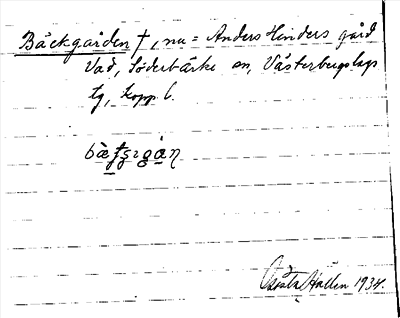 Bäckgården †, nu = Anders Hinders gård
Vad, Söderbärke sn, Västerbergslags
tg, Kopp. l.
Hallén 1934.